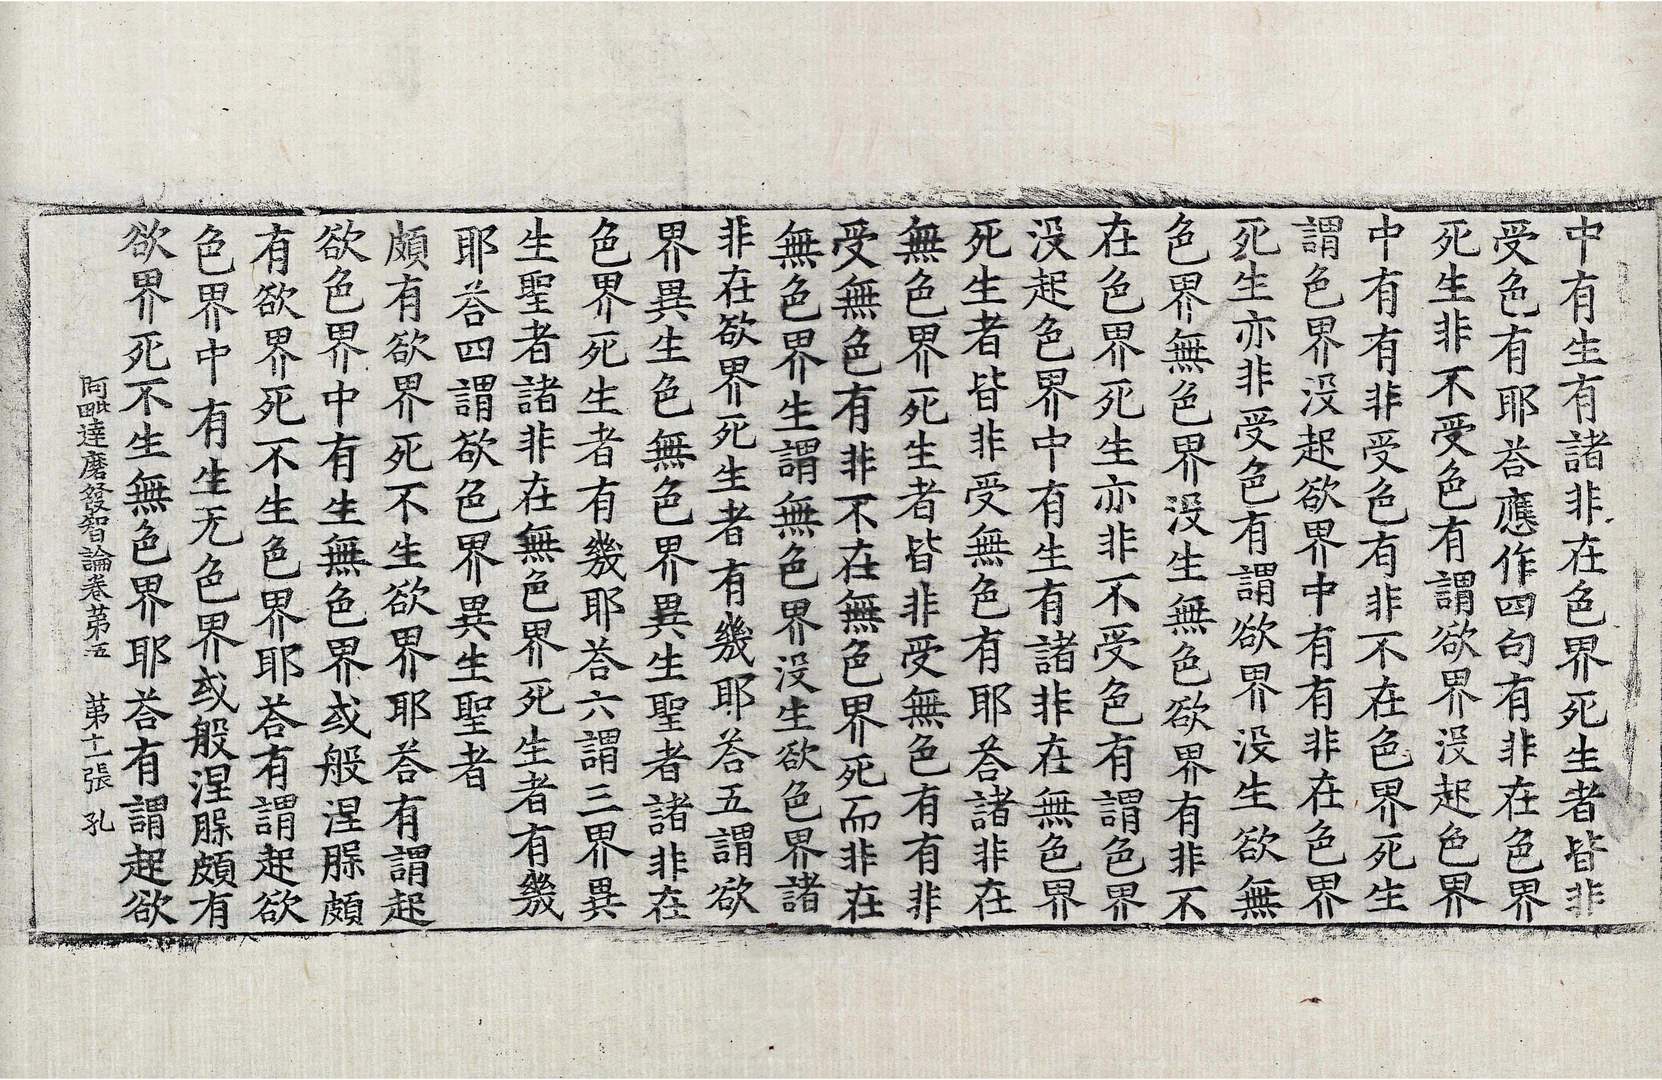 中有生有諸非在色界死生者皆非
受色有耶荅應作四句有非在色界
死生非不受色有謂欲界没起色界
中有有非受色有非不在色界死生
謂色界没起欲界中有有非在色界
死生亦非受色有謂欲界没生欲無
色界無色界没生無色欲界有非不
在色界死生亦非不受色有謂色界
没起色界中有生有諸非在無色界
死生者皆非受無色有耶荅諸非在
無色界死生者皆非受無色有有非
受無色有非不在無色界死而非在
無色界生謂無色界没生欲色界諸
非在欲界死生者有幾耶荅五謂欲
界異生色無色界異生聖者諸非在
色界死生者有幾耶荅六謂三界異
生聖者諸非在無色界死生者有幾
耶荅四謂欲色界異生聖者
頗有欲界死不生欲界耶荅有謂起
欲色界中有生無色界或般涅腺頗
有欲界死不生色界耶荅有謂起欲
色界中有生无色界或般涅腺頗有
欲界死不生無色界耶荅有謂起欲
阿毗達磨發智論卷苐五 苐十一張 孔